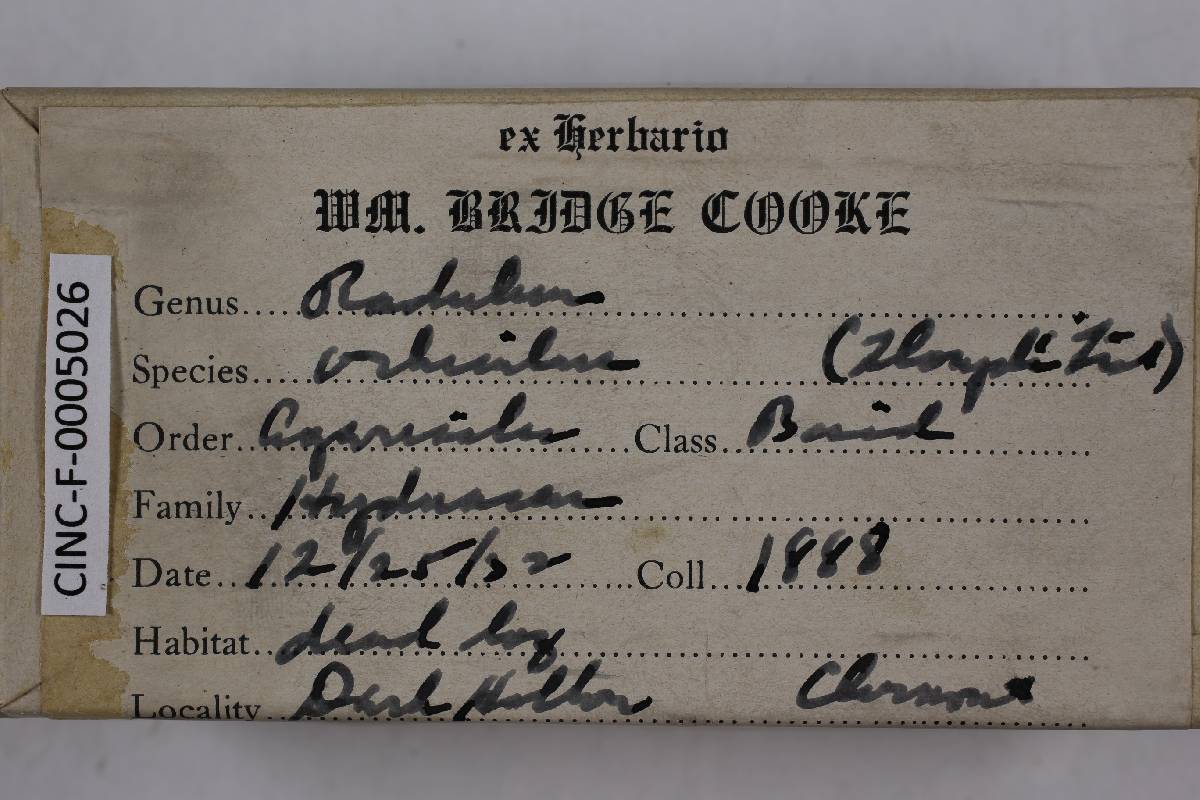 ex Herbario
WM. BRIDGE COOKE
Genus.... Radulum
Species.... orbiculare
Order.. Agaricales Class.. Basid
Family.. Hydnaceae
Date... 12/25/32 Coll... 1888
Habitat.. dead log
Locality.. Dark Hollow Clermont
CINC-F-0005026